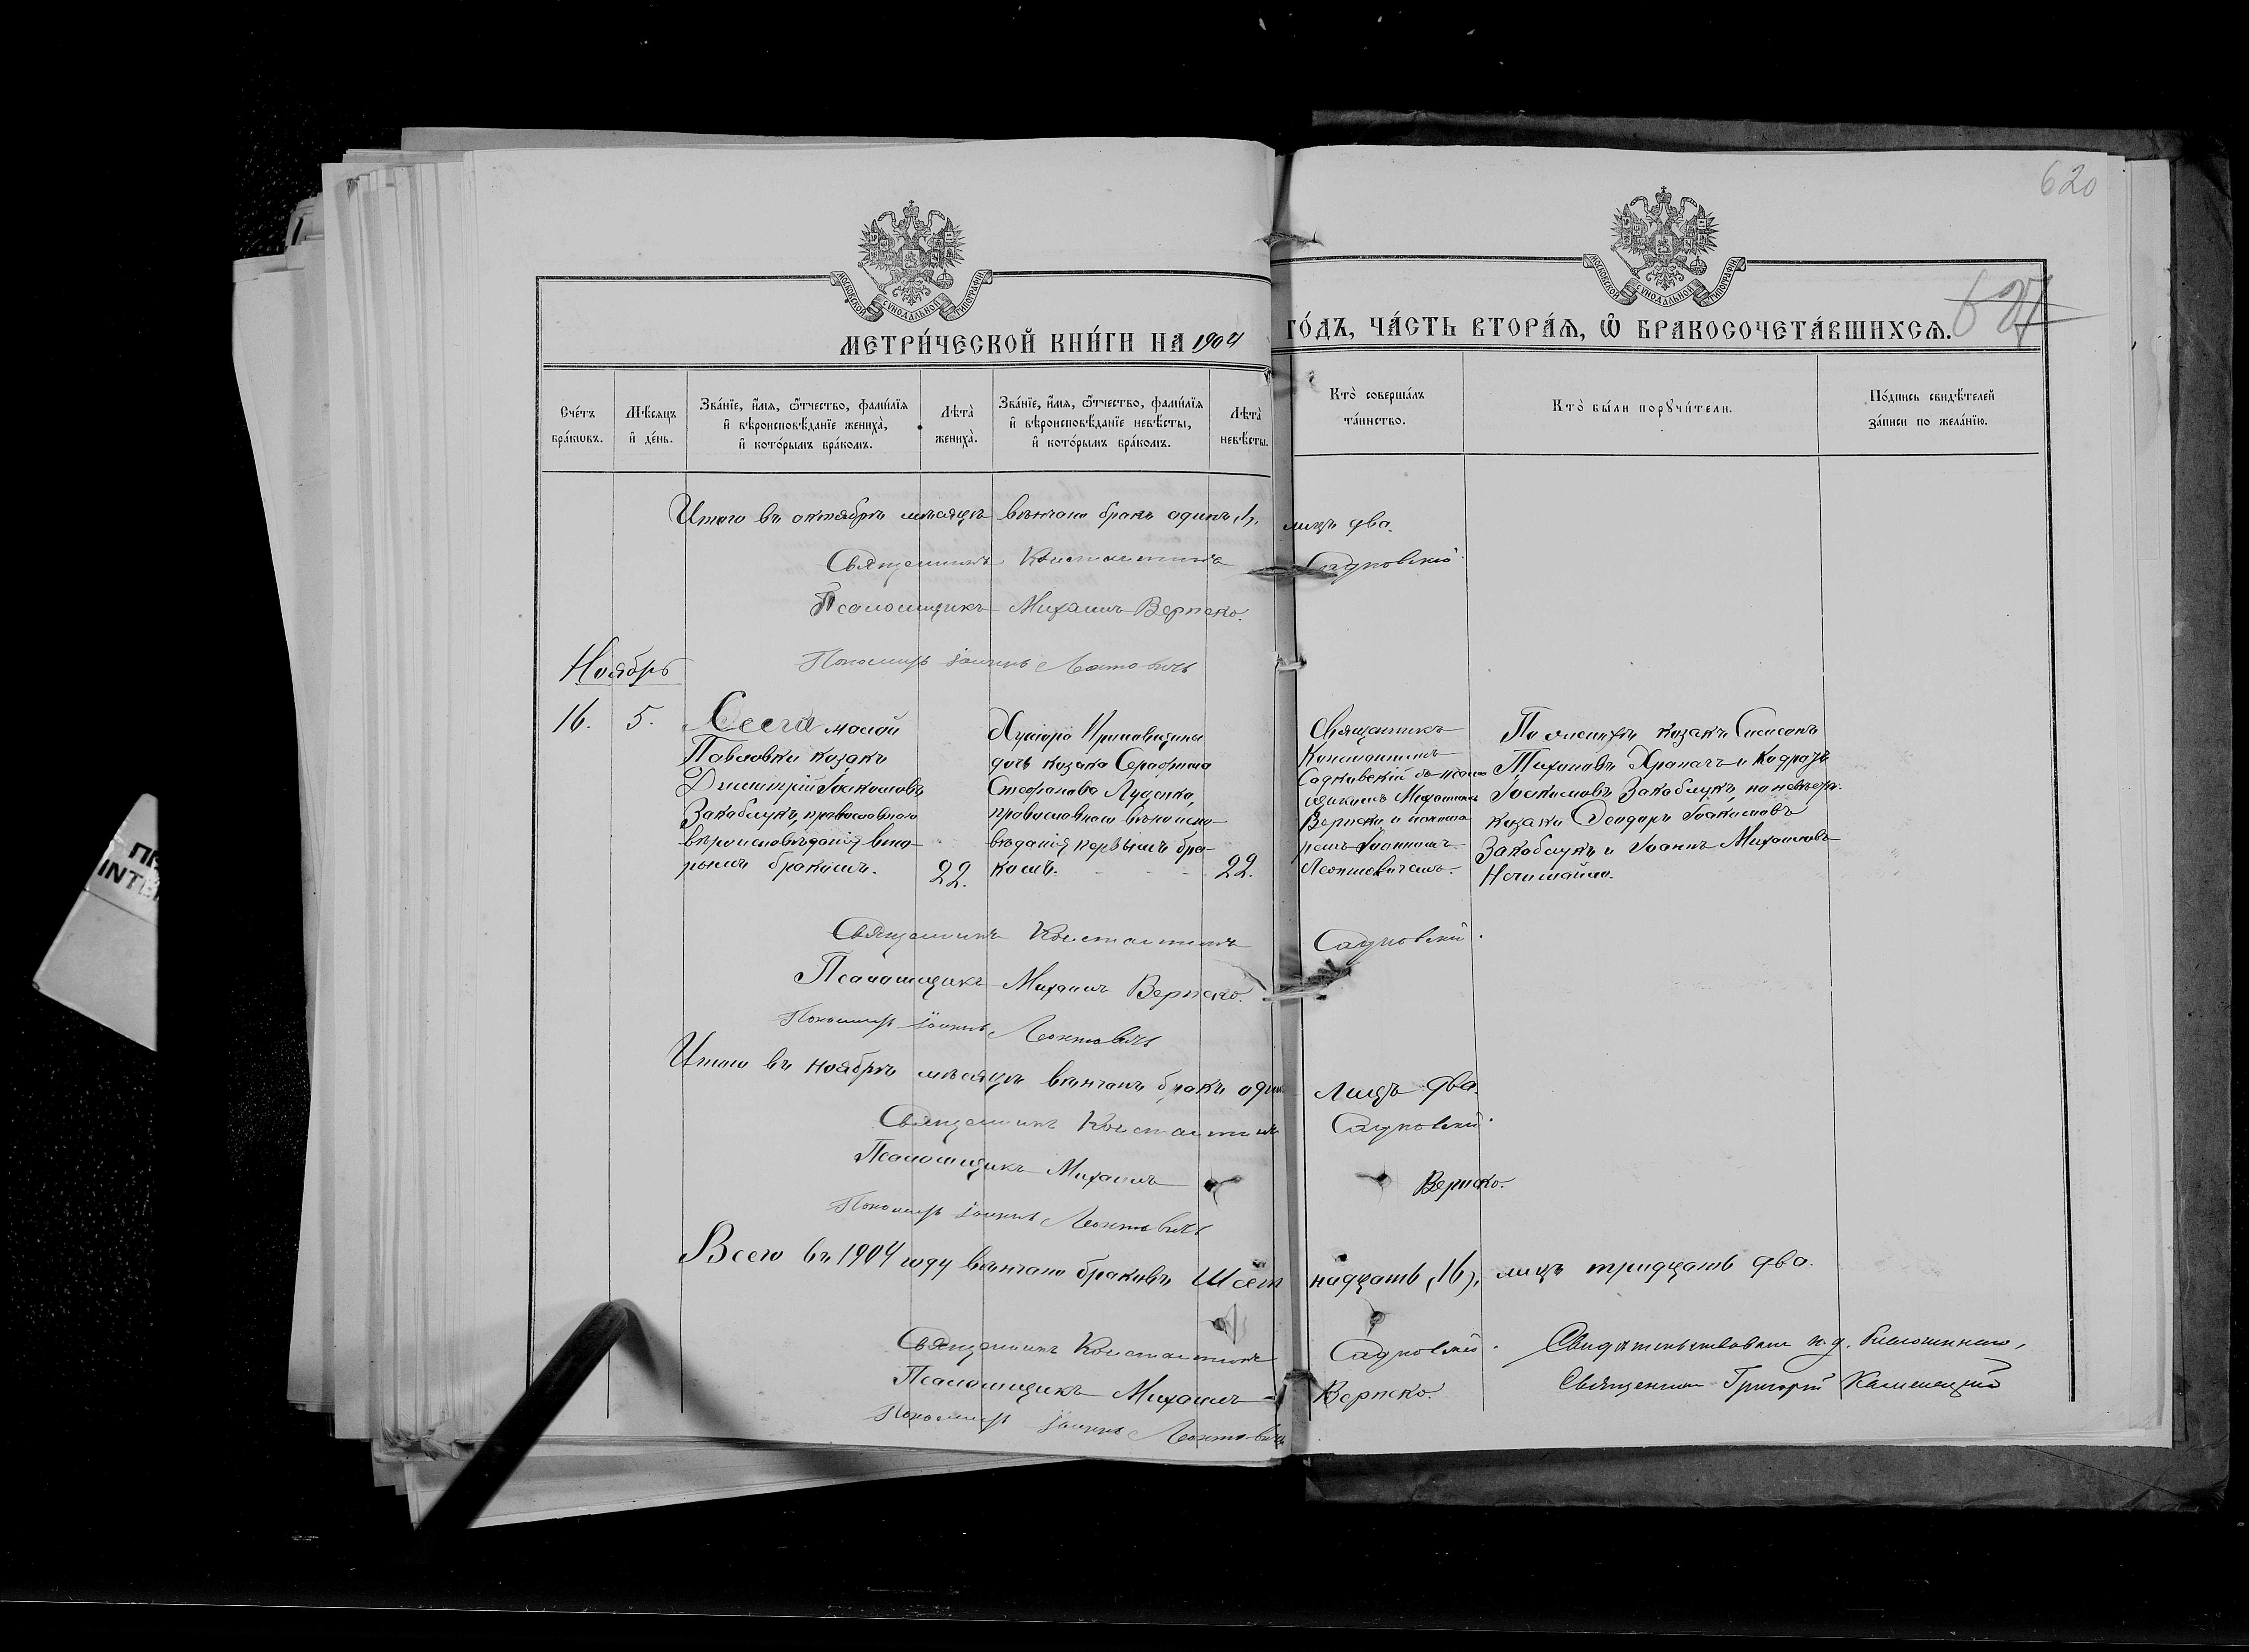 620
МОСКОВСКОЙ СѴНОДАЛЬНОЙ ТИПОГРАФІИ
МОСКОВСКОЙ СѴНОДАЛЬНОЙ ТИПОГРАФІИ
627
МЕТРИ́ЧЕСКОЙ КНИ́ГИ НА 1904 ГО́ДЪ, ЧА́СТЬ ВТОРА́Ѧ, Ѡ҆ БРАКОСОЧЕТА́ВШИХСѦ.
Сче́тъ бра́кѡвъ.
Мѣ́сяцъ и҆ де́нь.
Зва́нїе, и҆́мѧ, ѻ҆́тчество, фами́лїѧ
и҆ вѣроисповѣ́данїе жениха̀,
и҆ кото́рымъ бра́комъ.
Лѣ́та̀ жениха̀.
Зва́нїе, и҆́мѧ, ѻ҆́тчество, фами́лїѧ
и҆ вѣроисповѣ́данїе невѣ́сты,
и҆ кото́рымъ бра́комъ.
Лѣ́та̀ невѣ́сты.
Кто̀ соверша́лъ та́инство.
Кто̀ бы́ли порꙋчи́тели.
По́дпись свидѣ́телей за́писи по жела́нїю.
Итого въ октябрѣ мѣсяцѣ вѣнчано бракъ одинъ (1), лицъ два.
Священникъ Константинъ Садковскій.
Псаломщикъ Михаилъ Верпеко.
Пономарь Іоаннъ Леонтовичъ
Ноябрь
16.
5.
Села малой
Павловки козакъ
Димитрій Іоакимовъ
Закаблукъ, православнаго
вѣроисповѣданія вто-
рымъ бракомъ.
22.
Хутора
дочь козака Серафима
Стефанова Луценко,
православнаго вѣроиспо-
вѣданія первымъ бра-
комъ.
22.
Священникъ
Константинъ
Садковскій съ псалом-
щикомъ Михаиломъ
Верпеко и понома-
ремъ Іоанномъ
Леонтовичемъ.
По женихѣ козаки
Тихоновъ и Кодратъ
Іоакимовъ Закаблукъ, по невѣстѣ
козаки Ѳеодоръ Іоакимовъ
Закаблукъ и Іоаннъ Михаиловъ
Священникъ Константинъ Садковскій.
Псаломщикъ Михаилъ Верпеко.
Пономарь Іоаннъ Леонтовичъ
Итого въ ноябрѣ мѣсяцѣ вѣнчанъ бракъ одинъ лицъ два.
Священникъ Константинъ Садковскій.
Псаломщикъ Михаилъ Верпеко.
Пономарь Іоаннъ Леонтовичъ
Всего въ 1904 году вѣнчано браковъ шестнадцать (16), лицъ тридцать два.
Священникъ Константинъ Садковскій.
Псаломщикъ Михаилъ Верпеко.
Пономарь Іоаннъ Леонтовичъ
Свидѣтельствовалъ и. д. благочиннаго,
Священникъ Григорій Каменецкій